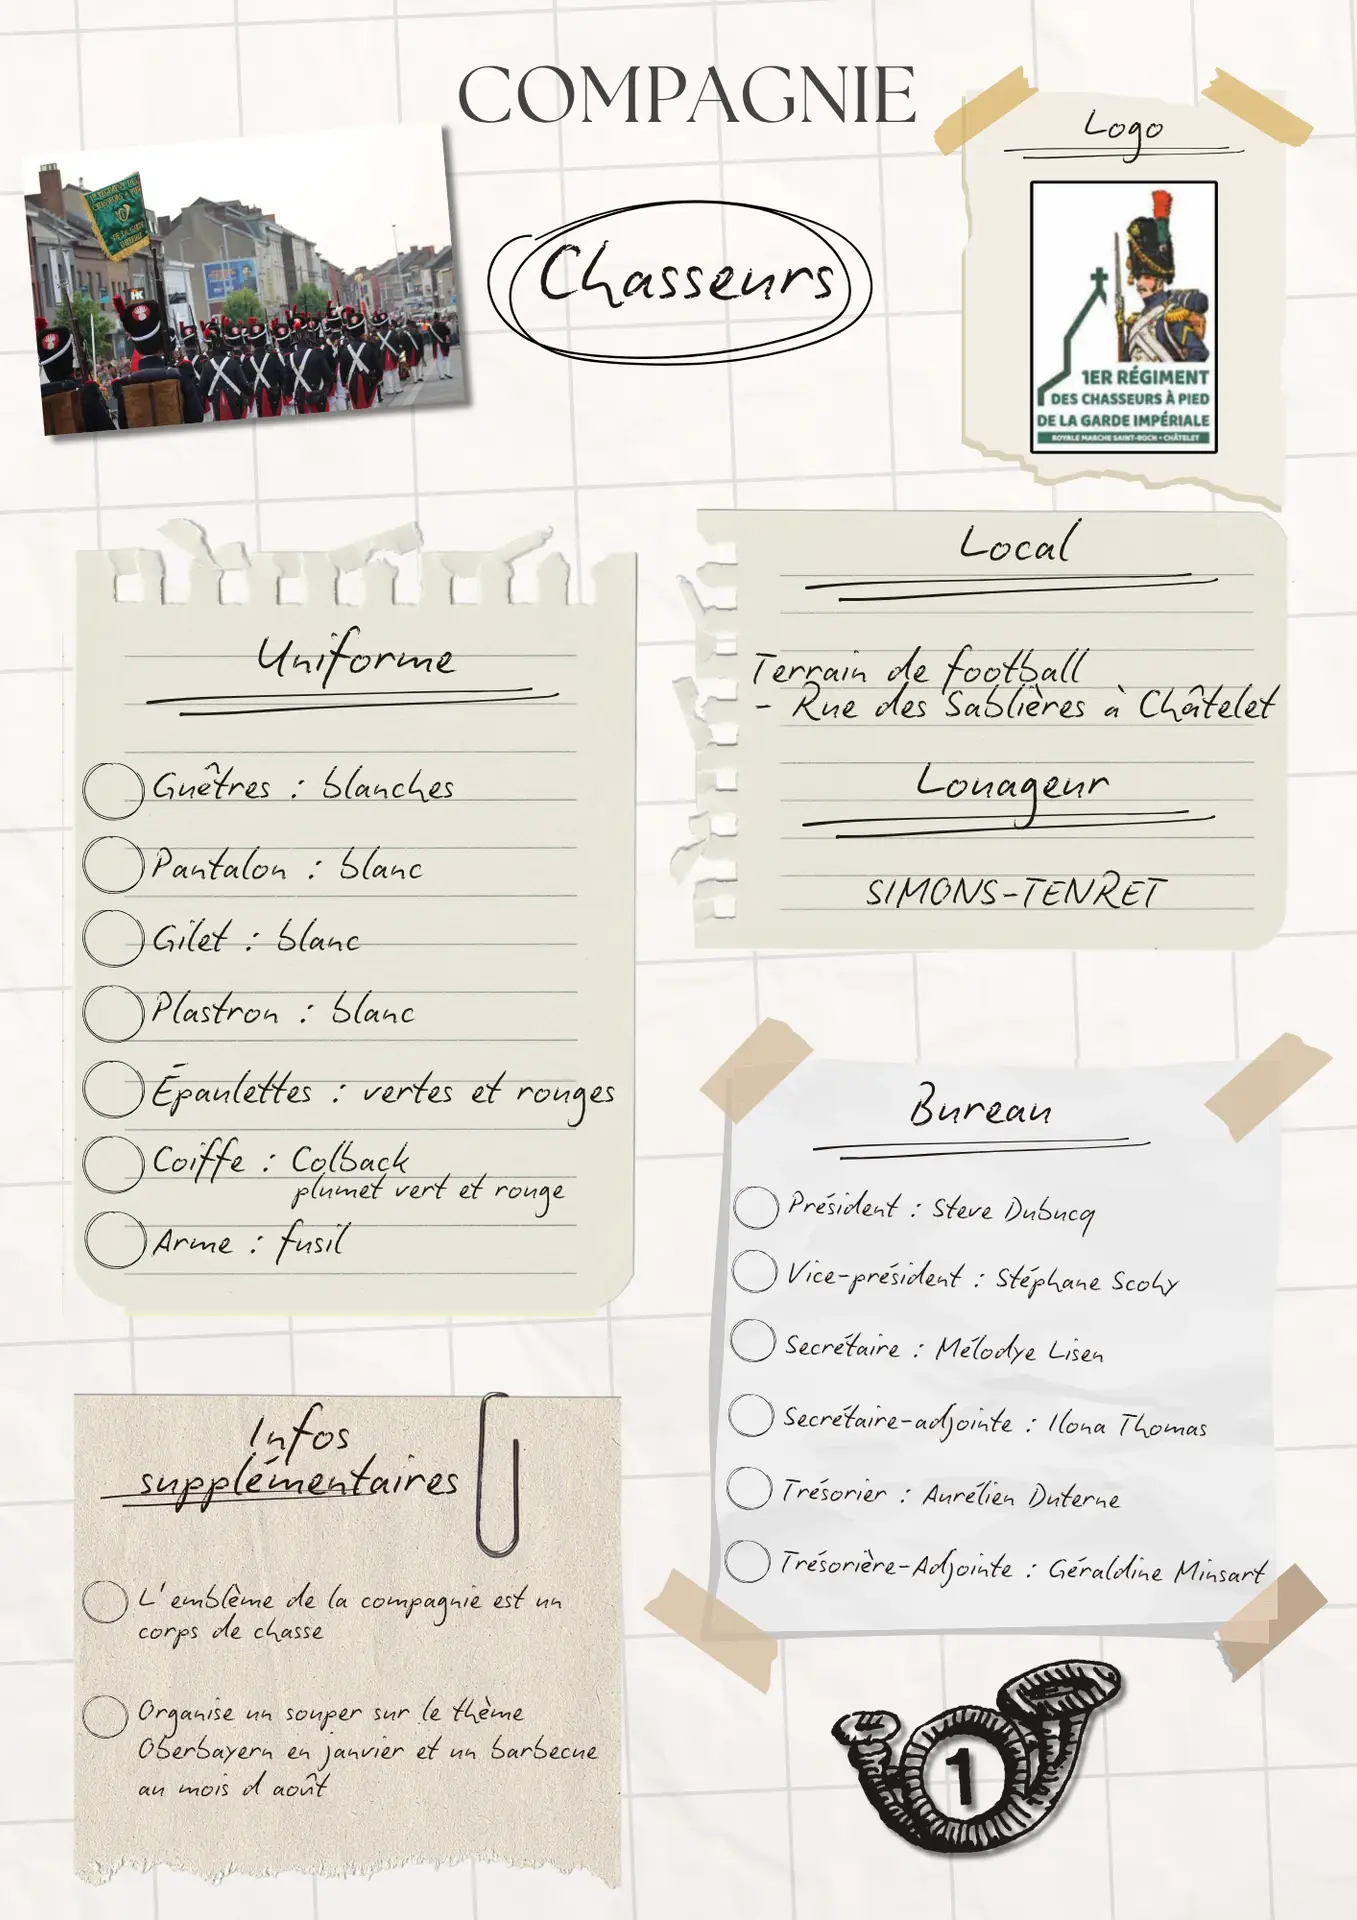 COMPAGNIE
Chasseurs
Logo
1ER RÉGIMENT
DES CHASSEURS À PIED
DE LA GARDE IMPÉRIALE
ROYALE MARCHE SAINT-ROCH • CHÂTELET
Uniforme
Guêtres : blanches
Pantalon : blanc
Gilet : blanc
Plastron : blanc
Épaulettes : vertes et rouges
Coiffe : Colback
plumet vert et rouge
Arme : fusil
Local
Terrain de football
- Rue des Sablières à Châtelet
Louageur
SIMONS-TENRET
Bureau
Président : Steve Dubucq
Vice-président : Stéphane Scohy
Secrétaire : Mélodye Lisen
Secrétaire-adjointe : Ilona Thomas
Trésorier : Aurélien Duterne
Trésorière-Adjointe : Géraldine Minsart
Infos
supplémentaires
L'emblème de la compagnie est un
corps de chasse
Organise un souper sur le thème
Oberbayern en janvier et un barbecue
au mois d août
1